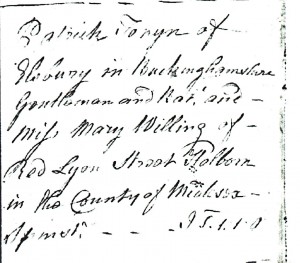 Patrick Tonyn of
in Buckinghamshire
Gentleman and and
Miss Mary Willing of
Red Lyon Street Holborn
in the County of Middsex